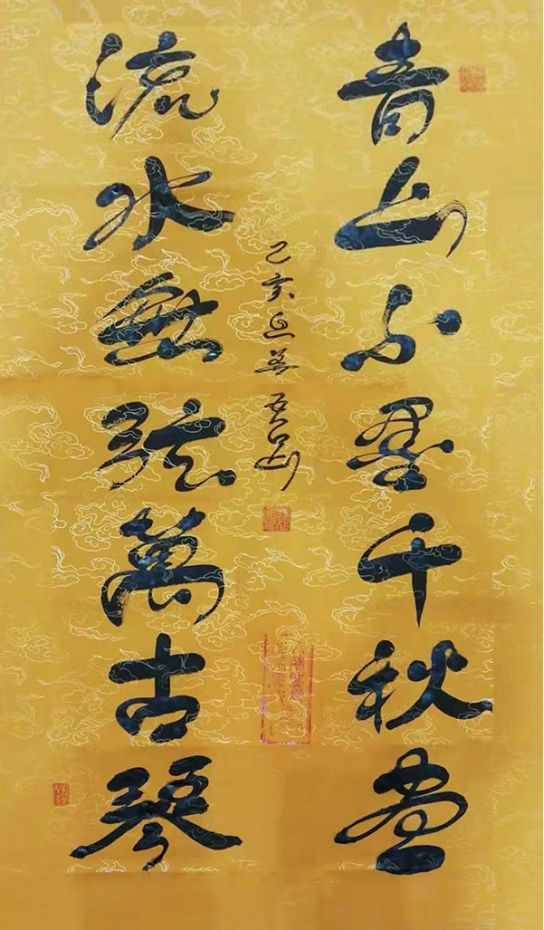 青山不墨千秋画
流水無弦萬古琴
己亥